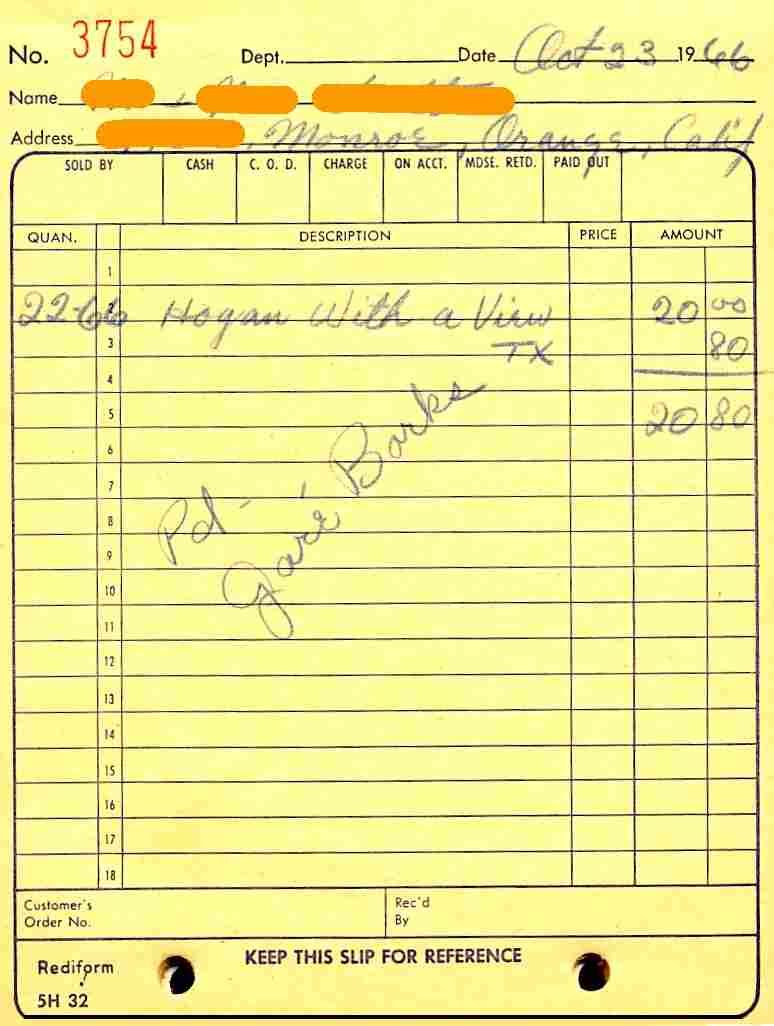 No. 3754 Dept. Date Oct 23 1966
Name
Address , Monroe, Orange, Calif
SOLD BY CASH C. O. D. CHARGE ON ACCT. MDSE. RETD. PAID OUT
QUAN. DESCRIPTION PRICE AMOUNT
1
22-66 2 Hogan With a View 20 00
3 TX 80
4
5 20 80
6
7
8
Pd- Garé Barks
9
10
11
12
13
14
15
16
17
18
Customer's Order No. Rec'd By
KEEP THIS SLIP FOR REFERENCE
Rediform
5H 32